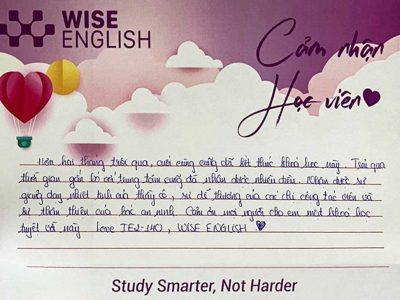 WISE
ENGLISH
Cảm nhận
Học viên
Hơn hai tháng trôi qua, cuối cùng cũng đã kết thúc khoá học này. Trải qua
thời gian gắn bó với trung tâm cũng đã nhận được nhiều điều. Nhận được sự
giảng dạy nhiệt tình của thầy cô, sự dễ thương của các chị cộng tác viên và
sự thân thiện của bác an ninh. Cảm ơn mọi người cho em một khoá học
tuyệt vời này. Love TE2-140, WISE ENGLISH
Study Smarter, Not Harder